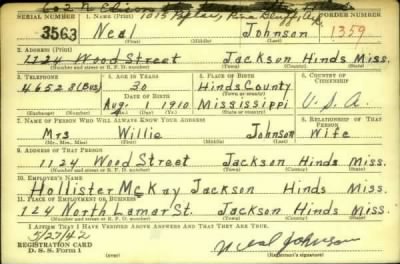 602 N
SERIAL NUMBER 1. NAME (Print) 1015 Pine Bluff, Ark ORDER NUMBER
3563 Neal Johnson 1359
(First) (Middle) (Last)
2. ADDRESS (Print)
1124 Wood Street Jackson Hinds Miss.
(Number and street or R. F. D. number) (Town) (County) (State)
3. TELEPHONE 4. AGE IN YEARS 5. PLACE OF BIRTH 6. COUNTRY OF CITIZENSHIP
46528(Bus) 30 Hinds County
DATE OF BIRTH (Town or county)
Aug 1 1910 Mississippi U.S.A.
(Exchange) (Number) (Mo.) (Day) (Yr.) (State or country)
7. NAME OF PERSON WHO WILL ALWAYS KNOW YOUR ADDRESS 8. RELATIONSHIP OF THAT PERSON
Mrs Willie Johnson Wife
(Mr., Mrs., Miss) (First) (Middle) (Last)
9. ADDRESS OF THAT PERSON
1124 Wood Street Jackson Hinds Miss.
(Number and street or R. F. D. number) (Town) (County) (State)
10. EMPLOYER'S NAME
Hollister McKay Jackson Hinds Miss.
11. PLACE OF EMPLOYMENT OR BUSINESS
124 North Lamar St. Jackson Hinds Miss.
(Number and street or R. F. D. number) (Town) (County) (State)
I AFFIRM THAT I HAVE VERIFIED ABOVE ANSWERS AND THAT THEY ARE TRUE.
5/27/42
REGISTRATION CARD
D. S. S. Form 1 Neal Johnson
(Registrant's signature)